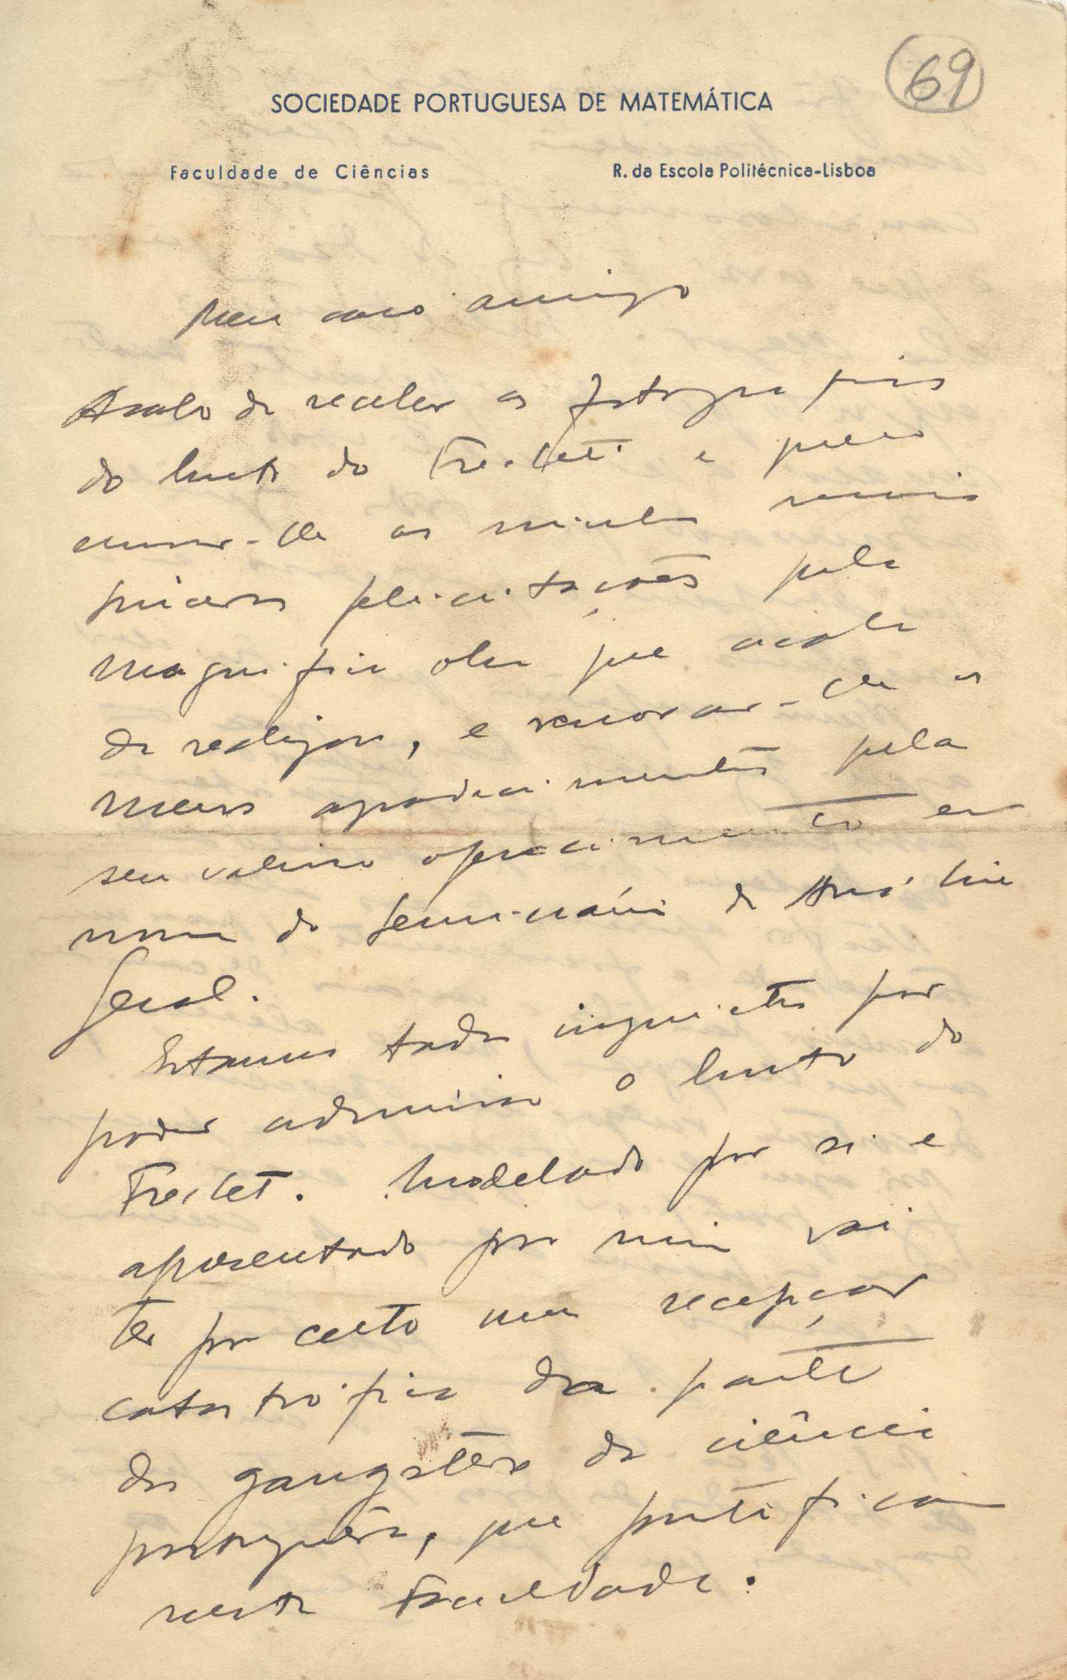 69
SOCIEDADE PORTUGUESA DE MATEMÁTICA
Faculdade de Ciências R. da Escola Politécnica-Lisboa
Meu caro amigo
Acabo de receber as fotografias
do busto do Fréchet e quero
enviar-lhe as minhas mais
sinceras felicitações pela
magnífica obra que acaba
de realizar, e renovar-lhe os
meus agradecimentos pelo
seu valioso oferecimento em
nome do Seminário de Análise
Geral.
Estamos todos inquietos por
poder admirar o busto do
Fréchet. Modelado por si e
apresentado por mim vai
ter por certo uma recepção
catastrófica da parte
dos gangsters da ciência
portuguesa, que pontificam
nesta Faculdade.